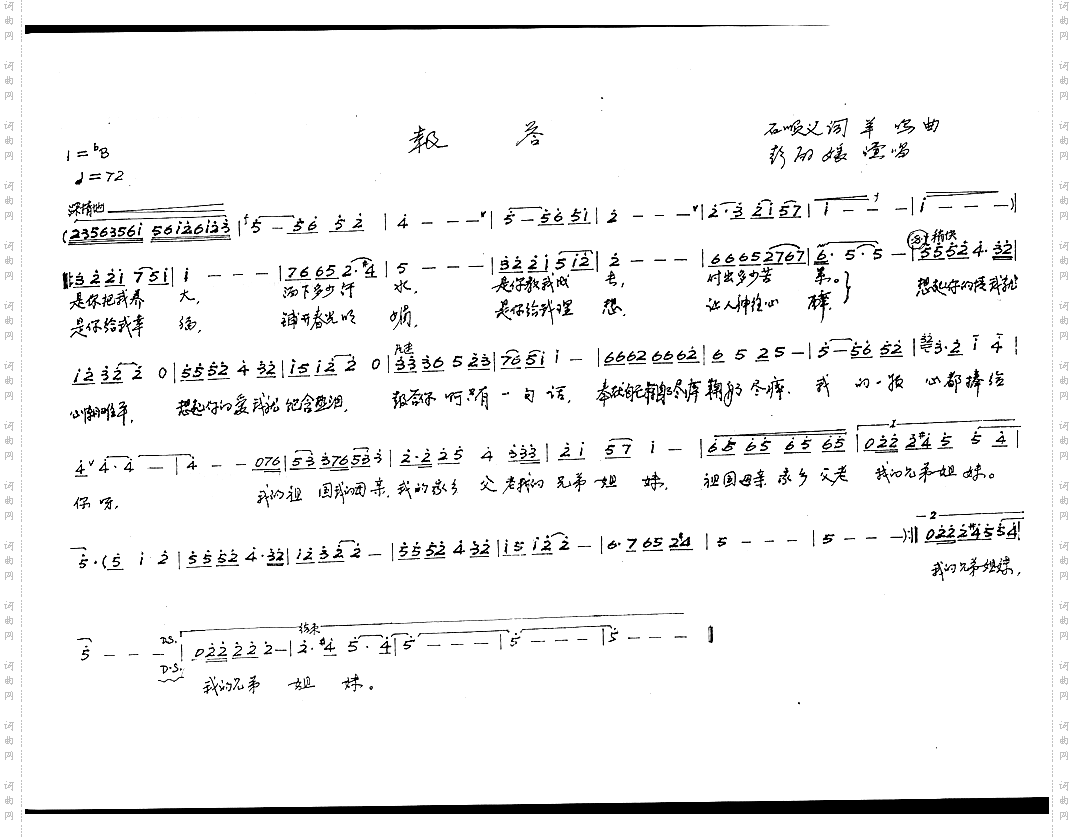 报 答
石顺义词 羊 鸣 曲
彭丽媛 演唱
1=ᵇB
♩=72
深情地
(23563561 56126123 | 5 - 56 52 | 4 - - - | 5 - 56 51 | 2 - - - | 2·3 21 57 | 1 - - - | 1 - - - )|
稍快
3221 751 | 1 - - - | 7665 2·#4 | 5 - - - | 3221 512 | 2 - - - | 6665 2767 | 6·5·5 - | 5552 4·32 |
是你把我养 大, 流下多少汗 水, 是你教我成 长, 付出多少苦 累。 想起你的
是你给我幸 福, 铺开春光明 媚, 是你给我理 想, 让人神往心 醉。
12322 0 | 5552 4 32 | 15122 0 | 3336 523 | 7651 1 - | 6662 6662 | 6 5 25 - | 5 - 56 52 | 3·2 1 4 |
想起你的爱我就饱含热泪, 报答你 啊只有 一 句 话, 鞠躬 尽瘁, 我 的 一 颗 心都捧给
4 4·4 - | 4 - - 076 | 533 376533 | 2·225 4 333 | 21 57 1 - | 65 65 65 65 | 022 3#45 5 4 |
你呀, 我的祖 国我的母亲, 我的家乡 父 老我的 兄弟 姐 妹, 祖国母亲 家乡 父老 我的兄弟姐 妹。
5·(5 1 2 | 5552 4·32 | 12322 - | 5552 4 32 | 15122 - | 6·765 2#4 | 5 - - - | 5 - - - ):‖ 0222#4554 |
我的兄弟姐妹,
5 - - - D.S. | 结束 022 222 - | 2·#4 5·4 | 5 - - - | 5 - - - | 5 - - - ‖
D.S.
我的兄弟 姐 妹。
词曲网